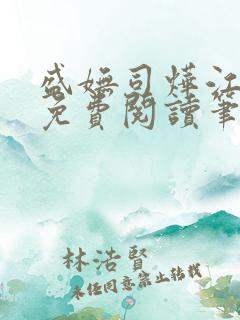 盛嫵司燁江
免費閱讀筆
林浩賢
未经同意禁止转载